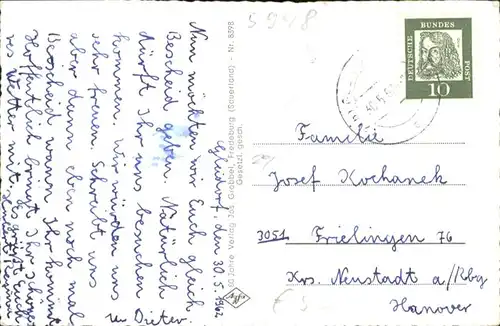 Gleidorf, den 30.5.1962
Nun möchten wir Euch gleich
Bescheid geben. Natürlich
dürft Ihr uns besuchen
kommen. Wir würden uns
sehr freuen. Schreibt uns
aber dann eben noch mal
Bescheid wann Ihr kommt.
Hoffentlich bringt Ihr schönes
Wetter mit. Es grüßt Euch
u. Dieter.
60 Jahre Verlag Jos. Grobbel, Fredeburg (Sauerland) - Nr. 8598
Gesetzl. gesch.
5948
DEUTSCHE
BUNDES
POST
10
Familie
Josef Kochanek
3051 Frielingen 76
Krs. Neustadt a/Rbg
Hanover